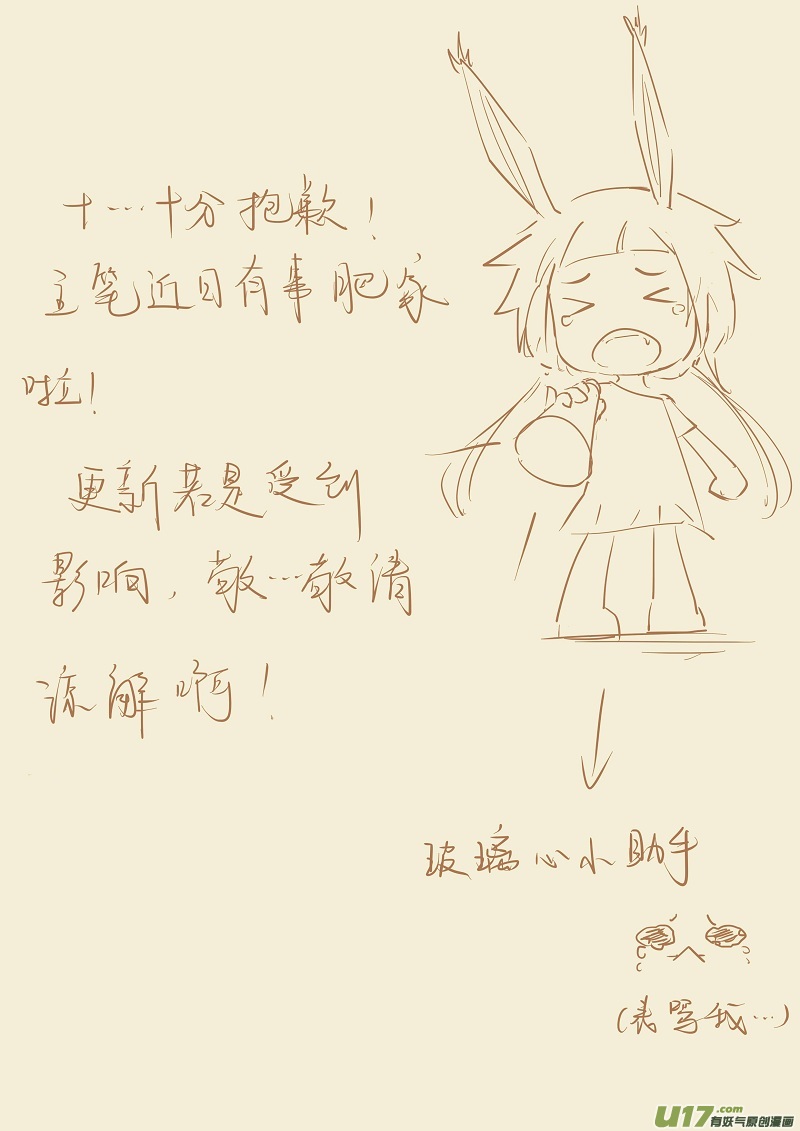 十…十分抱歉！
主笔近日有事肥家
啦！
更新若是受到
影响，敬…敬请
谅解啊！
玻璃心小助手
(表骂我…)
U17.com
有妖气原创漫画